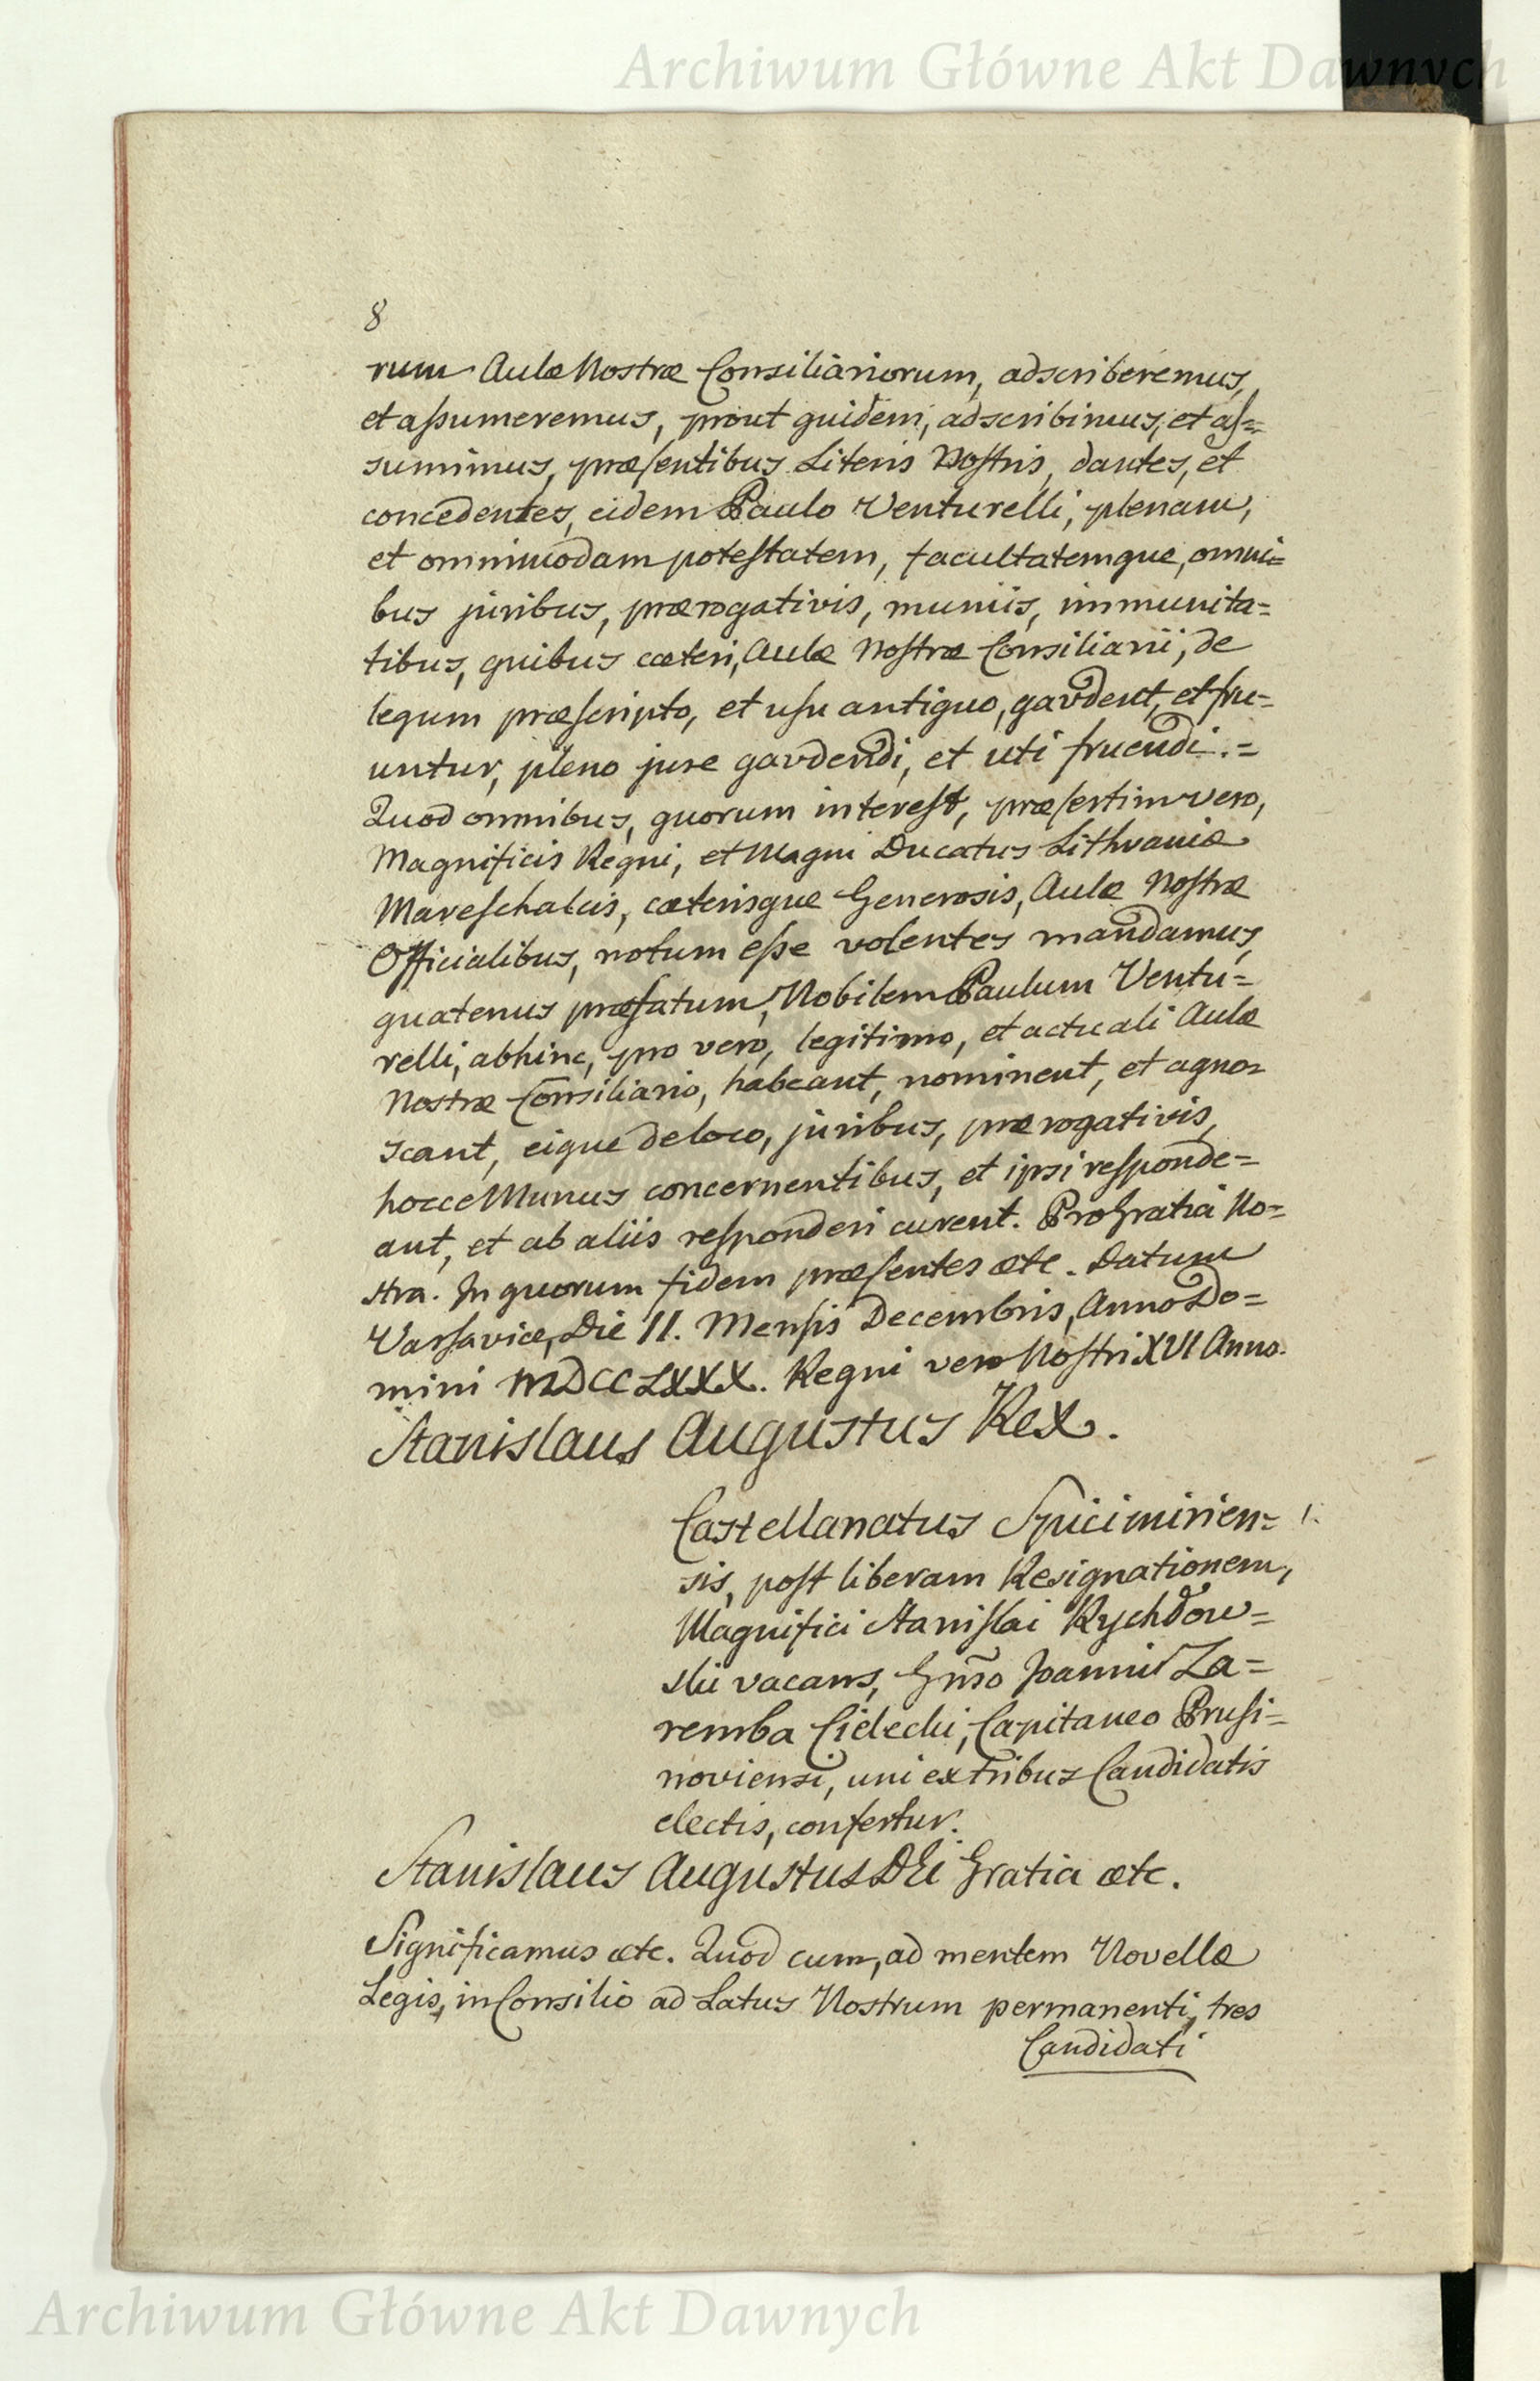 Archiwum Główne Akt Dawnych
8
rum Aulæ Nostræ Consiliariorum, adscriberemus,
et assumeremus, prout quidem, adscribimus, et as=
sumimus, præsentibus Literis Nostris, dantes, et
concedentes, eidem Paulo Venturelli, plenam,
et omnimodam potestatem, facultatemque, omni=
bus juribus, prærogativis, muniis, immunita=
tibus, quibus cæteri, Aulæ Nostræ Consiliarii, de
legum præscripto, et usu antiquo, gavdent, et fru=
untur, pleno jure gavdendi, et uti fruendi.=
Quod omnibus, quorum interest, præsertim vero,
Magnificis Regni, et Magni Ducatus Lithvaniæ
Mareschalcis, cæterisque Generosis, Aulæ Nostræ
Officialibus, notum esse volentes mandamus,
quatenus præfatum, Nobilem Paulum Ventu=
relli, abhinc, pro vero, legitimo, et actuali Aulæ
Nostræ Consiliario, habeant, nominent, et agno=
scant, eique de loco, juribus, prærogativis,
hocce Munus concernentibus, et ipsi responde=
ant, et ab aliis responderi curent. Pro Gratia No=
stra. In quorum fidem præsentes etc. Datum
Varsaviæ, Die 11. Mensis Decembris, Anno Do=
mini MDCCLXXX. Regni vero Nostri XVII Anno.
Stanislaus Augustus Rex.
Castellanatus Spicimirien=
sis, post liberam Resignationem,
Magnifici Stanislai Rychłow=
ski vacans, Gnso Joanni Za=
remba Cielecki, Capitaneo Prusi=
noviensi, uni ex tribus Candidatis
electis, confertur.
Stanislaus Augustus DEi Gratia etc.
Significamus etc. Quod cum, ad mentem Novellæ
Legis, in Consilio ad Latus Nostrum permanenti, tres
Candidati
Archiwum Główne Akt Dawnych